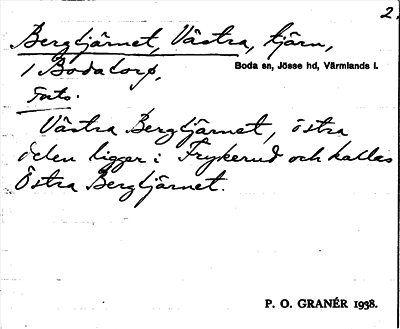 2.
Bergtjärnet, Västra, tjärn,
i Bodatorp, Boda sn, Jösse hd, Värmlands l.
Forts.
Västra Bergtjärnet, östra
delen ligger i Frykerud och kallas
Östra Bergtjärnet.
P. O. GRANÉR 1938.